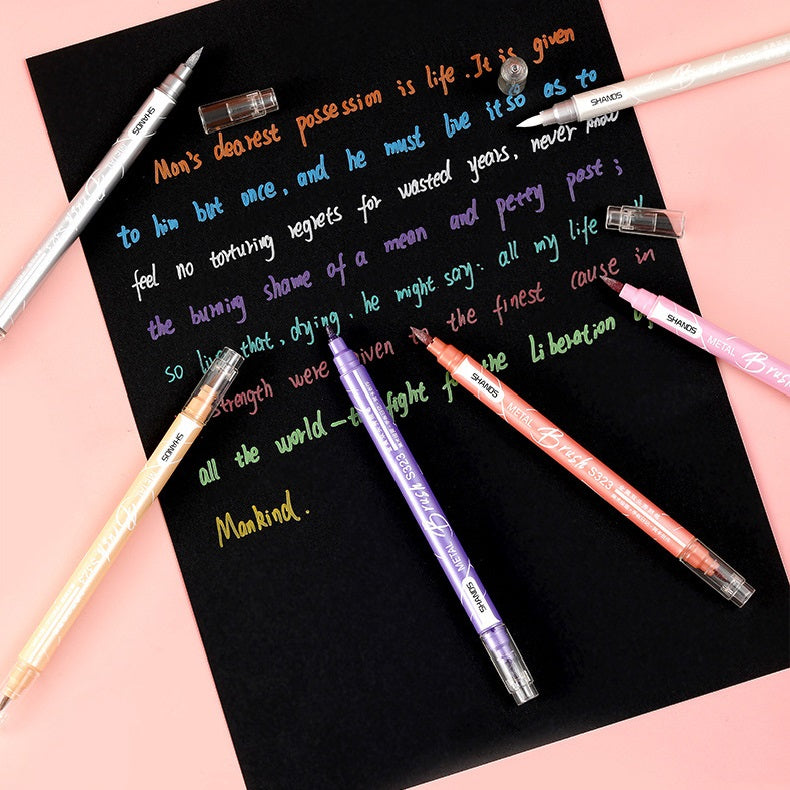 Man's dearest possession is life. It is given
to him but once, and he must live it so as to
feel no torturing regrets for wasted years, never know
the burning shame of a mean and petty past;
so live that, dying, he might say: all my life
strength were given to the finest cause in
all the world—to fight for the Liberation of
Mankind.
SHANDS
SHANDS
SHANDS METAL Brush
SHANDS METAL Brush S323
SHANDS METAL Brush S323
SHANDS